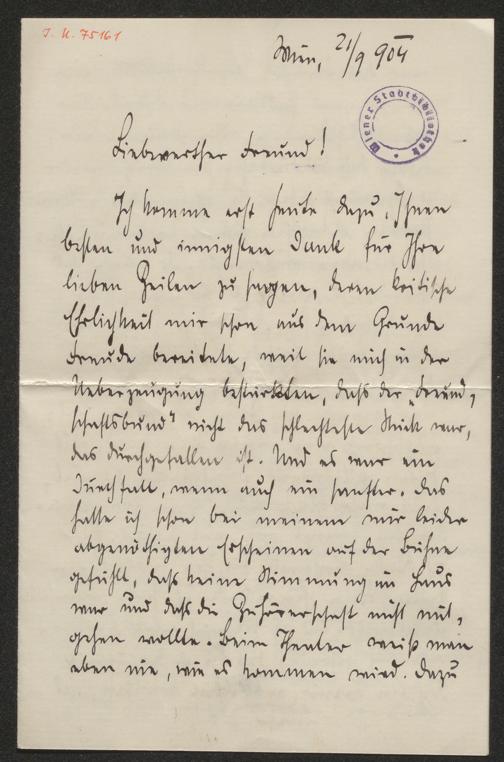 J. N. 75161
Wien, 21/9 904
Wiener Stadtbibliothek
Liebwerther Freund!
Ich komme erst heute dazu, Ihnen
besten und innigsten Dank für Ihre
lieben Zeilen zu sagen, deren kritische
Ehrlichkeit mir schon aus dem Grunde
Freude bereitete, weil sie mich in der
Ueberzeugung bestärkten, dass der "Freund,
schaftsbund" nicht das schlechteste Stück war,
das durchgefallen ist. Und es war ein
Durchfall, wenn auch ein sanfter. Das
hatte ich schon bei meinem mir leider
abgenöthigten Erscheinen auf der Bühne
gefühlt, dass keine Stimmung im Haus
war und dass die Zuhörerschaft nicht mit,
gehen wollte. Beim Theater weiß man
eben nie, wie es kommen wird. Dazu